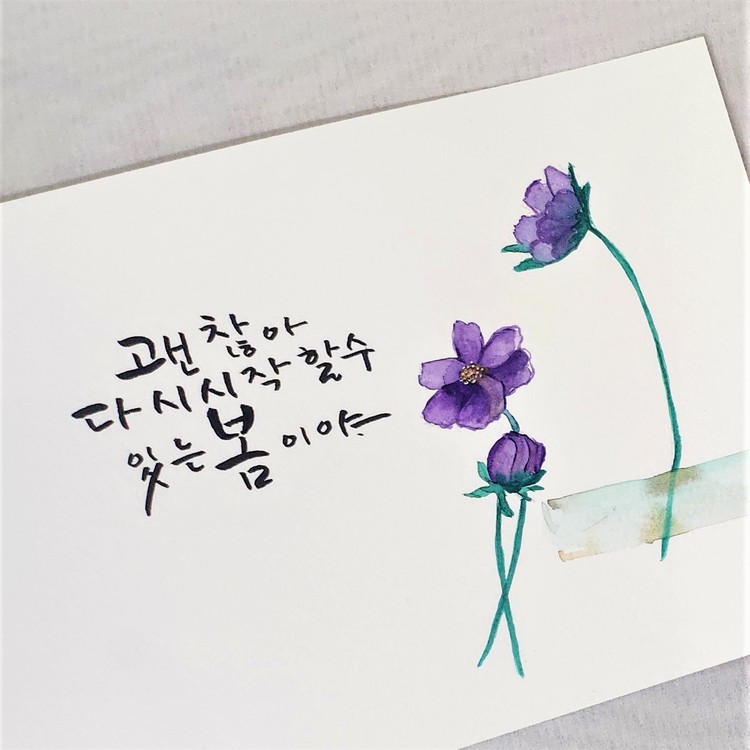 괜찮아
다시시작할수
있는봄이야